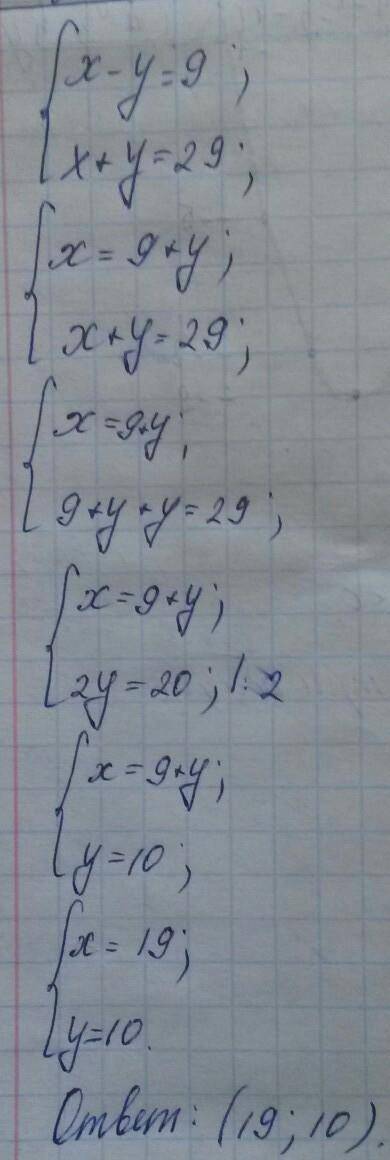 x - y = 9;
x + y = 29;
x = 9 + y;
x + y = 29;
x = 9 + y;
9 + y + y = 29;
x = 9 + y;
2y = 20; |: 2
x = 9 + y;
y = 10;
x = 19;
y = 10.
Ответ: (19; 10).